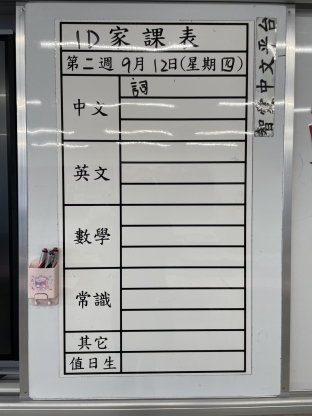 1D家課表
第二週 9月12日(星期四)
中文
詞
英文
數學
常識
其它
值日生
智愛中文平台